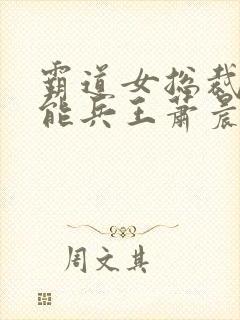 霸道女总裁
能兵王萧晨
周文其